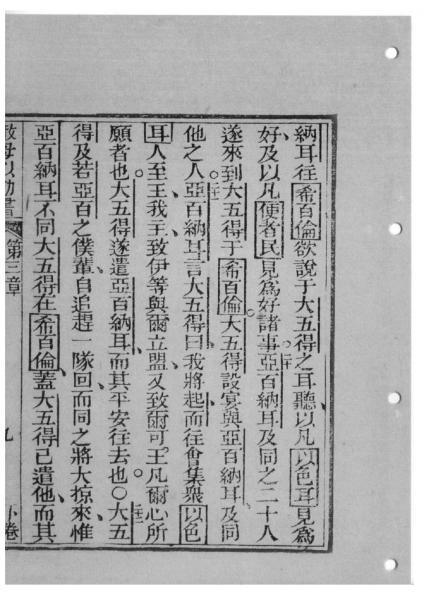 納耳往希百倫欲說于大五得之耳聽以凡以色耳見爲
好及以凡便者民見爲好諸事亞百納耳及同之二十人
遂來到大五得于希百倫大五得設宴與亞百納耳及同
他之人亞百納耳言大五得曰我將起而往會集衆以色
耳人至王我主致伊等與爾立盟又致爾可王凡爾心所
願者也大五得遂遣亞百納耳而其平安往去也○大五
得及若亞百之僕輩自追趕一隊回而同之將大掠來惟
亞百納耳不同大五得在希百倫蓋大五得已遣他而其
第三章 九